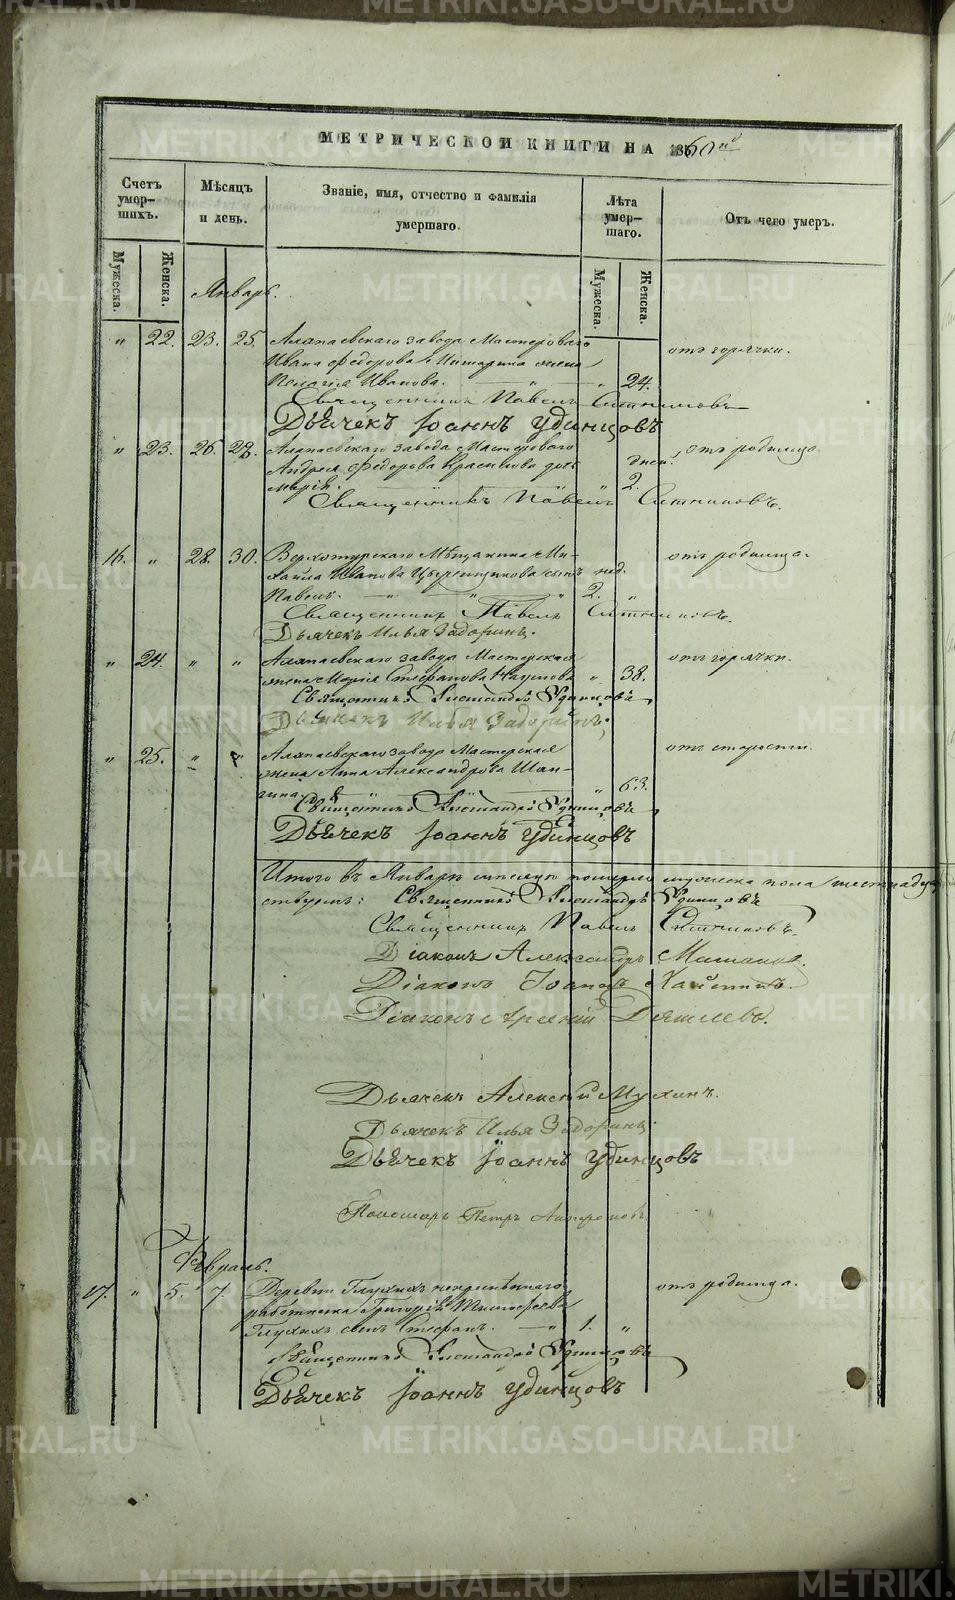 МЕТРИЧЕСКОЙ КНИГИ НА 1860й
Счетъ умер-шихъ.
Мѣсяцъ и день.
Званіе, имя, отчество и фамилія умершаго.
Лѣта умер-шаго.
Отъ чего умеръ.
Мужеска.
Женска.
Мужеска.
Женска.
Январь.
" 22. 23. 25. Алапаевскаго завода Мастероваго отъ горячки.
Ивана Федорова жена
Пелагія Иванова. " " 24.
Священникъ Павелъ Ситниковъ
Дьячекъ Іоаннъ Удинцовъ
" 23. 26. 28. Алапаевскаго завода Мастероваго отъ родимца.
Андрея Федорова дочь дней
Марія. " 2.
Священникъ Павелъ Ситниковъ.
16. " 28. 30. Верхотурскаго Мѣщанина Ми- отъ родимца.
хайла Иванова сынъ нед.
Павелъ. " " " 2. "
Священникъ Павелъ Ситниковъ.
Дьячекъ Илья Задоринъ.
" 24. " " Алапаевскаго завода Мастерская отъ горячки.
жена Марія Стефанова " 38.
Священникъ Александръ Удинцовъ
Дьячекъ Илья Задоринъ.
" 25. " " Алапаевскаго завода Мастерская отъ старости.
жена Анна Александрова Шан-
гина. " " " 63.
Священникъ Александръ Удинцовъ
Дьячекъ Іоаннъ Удинцовъ
Итого въ Январѣ мѣсяцѣ померло мужеска пола шестнадца
Священникъ Александръ Удинцовъ
Священникъ Павелъ Ситниковъ.
Діаконъ Александръ
Діаконъ Іоаннъ
Діаконъ Арсеній
Дьячекъ Алексій Мухинъ.
Дьячекъ Илья Задоринъ.
Дьячекъ Іоаннъ Удинцовъ
Пономарь Петръ
Февраль.
17. " 5. 7. Деревни Глухихъ отъ родимца.
работника Григорія Тимофеева
Глухихъ сынъ Стефанъ. " 1. "
Священникъ Александръ Удинцовъ
Дьячекъ Іоаннъ Удинцовъ
METRIKI.GASO-URAL.RU